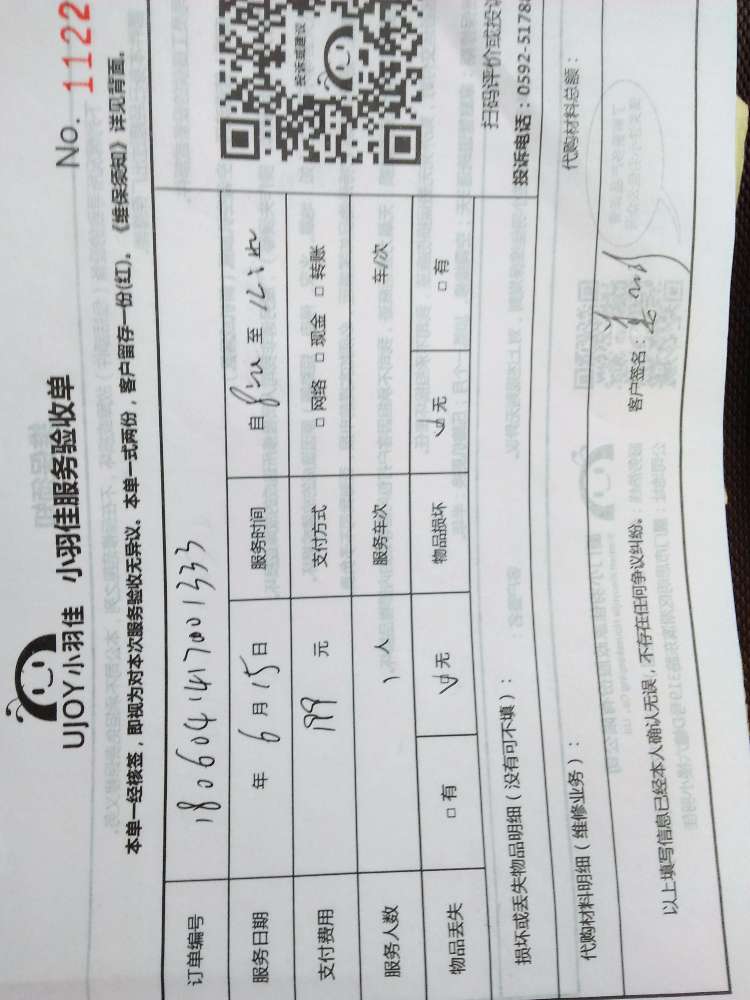 UJOY小羽佳 小羽佳服务验收单
No. 1122
本单一经核签，即视为对本次服务验收无异议。本单一式两份，客户留存一份(红)。《维保须知》详见背面。
订单编号 180604147001333
服务日期 年 6 月 15 日 服务时间 自 至
支付费用 199 元 支付方式 □ 网络 □ 现金 □ 转账
服务人数 1 人 服务车次 车/次
物品丢失 □ 有 ☑ 无 物品损坏 ☑ 无 □ 有
投诉或建议
扫码评价或投诉
投诉电话：0592-5178
损坏或丢失物品明细（没有可不填）：
代购材料明细（维修业务）： 代购材料总额：
以上填写信息已经本人确认无误，不存在任何争议纠纷。 客户签名：